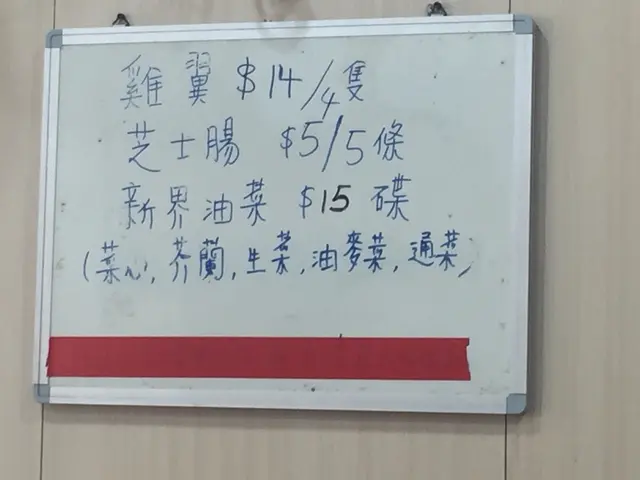 雞翼 $14/4隻
芝士腸 $5/5條
新界油菜 $15 碟
(菜心, 芥蘭, 生菜, 油麥菜, 通菜,